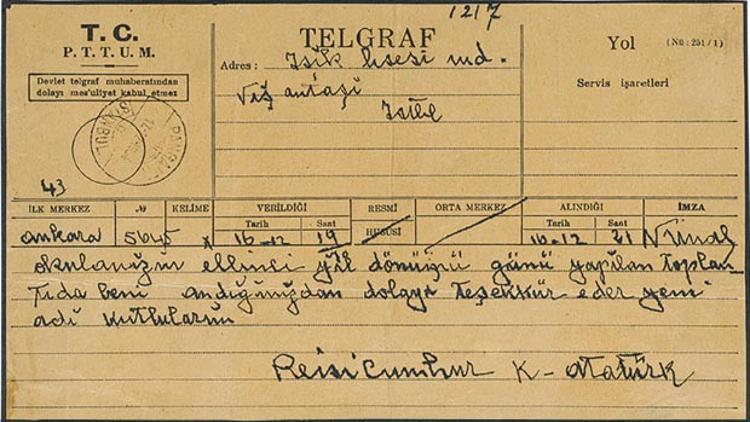 1217
T. C.
P. T. T. U. M.
Devlet telgraf muhaberatından
dolayı mes'uliyet kabul etmez
TELGRAF
Adres : Işık lisesi md.
Nişantaşı
Istbl
Yol (Nü: 251/1)
Servis işaretleri
ISTANBUL
43
İLK MERKEZ № KELİME VERİLDİĞİ RESMİ ORTA MERKEZ ALINDIĞI İMZA
Tarih Saat HUSUSİ Tarih Saat
ankara 5645 16-12 19 16-12 21
okulanızın ellinci yıl dönümü günü yapılan toplan
tıda beni andığınızdan dolayı teşekkür eder yeni
adı kutlularım
Reisicumhur K- atatürk